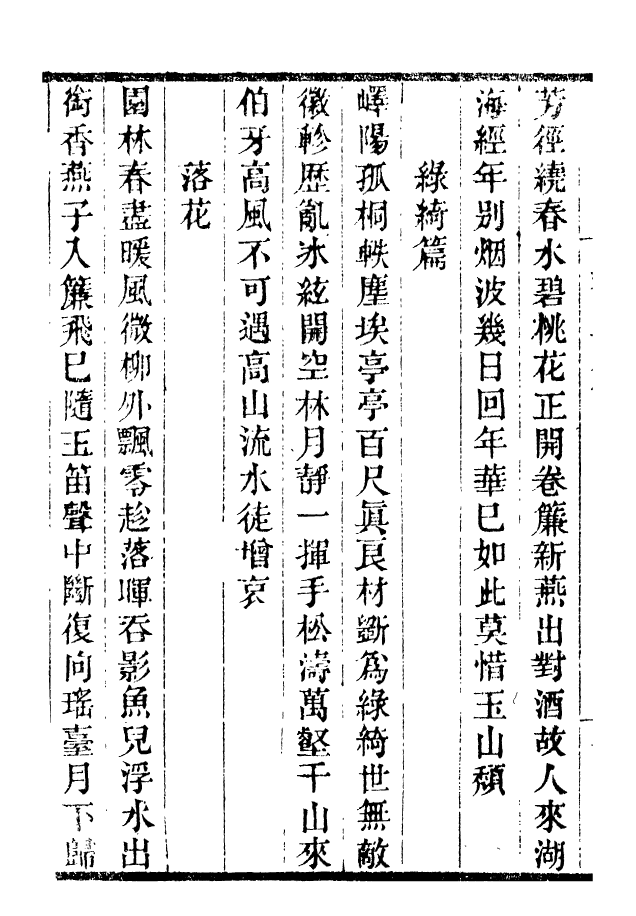 芳徑繞春水碧桃花正開卷簾新燕出對酒故人來湖
海經年别烟波幾日回年華巳如此莫惜玉山頹
綠綺篇
嶧陽孤桐軼塵埃亭亭百尺眞良材斵爲綠綺世無敵
徽軫歷亂冰絃開空林月靜一揮手松濤萬壑千山來
伯牙高風不可遇高山流水徒增哀
落花
園林春盡暖風微柳外飄零趁落暉吞影魚兒浮水出
銜香燕子入簾飛巳隨玉笛聲中斷復向瑤臺月下歸